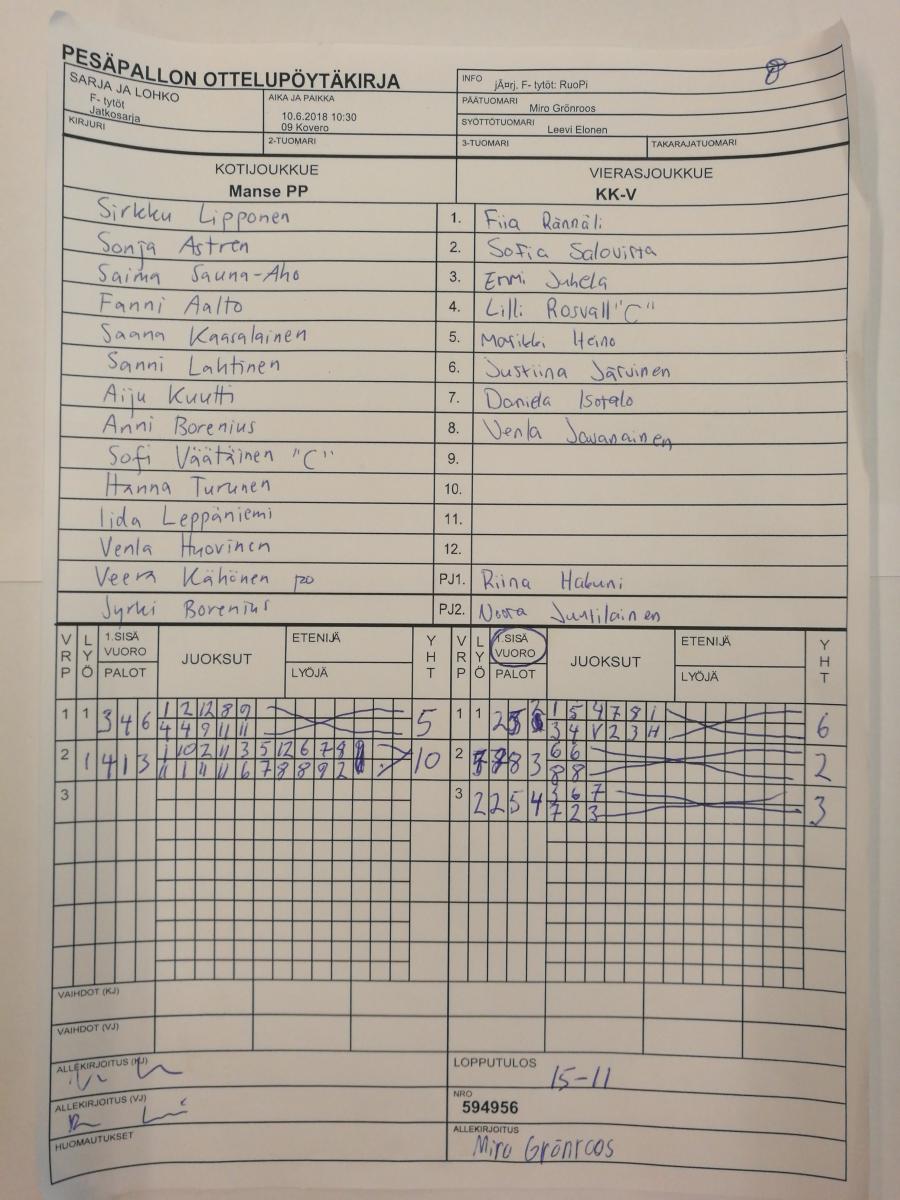 8
PESÄPALLON OTTELUPÖYTÄKIRJA
SARJA JA LOHKO
F- tytöt
Jatkosarja
KIRJURI
AIKA JA PAIKKA
10.6.2018 10:30
09 Kovero
2-TUOMARI
INFO jÃ¤rj. F- tytöt: RuoPi
PÄÄTUOMARI Miro Grönroos
SYÖTTÖTUOMARI Leevi Elonen
3-TUOMARI TAKARAJATUOMARI
KOTIJOUKKUE VIERASJOUKKUE
Manse PP KK-V
Sirkku Lipponen 1. Fiia Rännäli
Sonja Astren 2. Sofia Salovirta
Saima Sauna-Aho 3. Emmi Juhela
Fanni Aalto 4. Lilli Rosvall "C"
Saana Kaasalainen 5. Marikki Heino
Sanni Lahtinen 6. Justiina Järvinen
Aiju Kuutti 7. Daniela Isotalo
Anni Borenius 8. Venla Javanainen
Sofi Väätäinen "C" 9.
Hanna Turunen 10.
Iida Leppäniemi 11.
Venla Huovinen 12.
Veera Kähönen PJ1. Riina Hakuni
Jyrki Borenius PJ2. Noora Juntilainen
VRP LYÖ 1.SISÄ VUORO PALOT JUOKSUT ETENIJÄ LYÖJÄ YHT VRP LYÖ 1.SISÄ VUORO PALOT JUOKSUT ETENIJÄ LYÖJÄ YHT
1 1 3 4 6 1 2 12 8 9 5 1 1 2 1 5 4 7 8 1 6
4 4 9 11 11 3 4 V 2 3 H
2 1 4 1 3 1 10 2 11 3 5 12 6 7 8 10 2 8 3 6 6 2
11 1 11 11 6 7 8 8 9 2 8 8
3 3 2 2 5 4 3 6 7 3
7 2 3
VAIHDOT (KJ)
VAIHDOT (VJ)
ALLEKIRJOITUS (KJ) LOPPUTULOS
15-11
ALLEKIRJOITUS (VJ) NRO
594956
HUOMAUTUKSET ALLEKIRJOITUS
Miro Grönroos